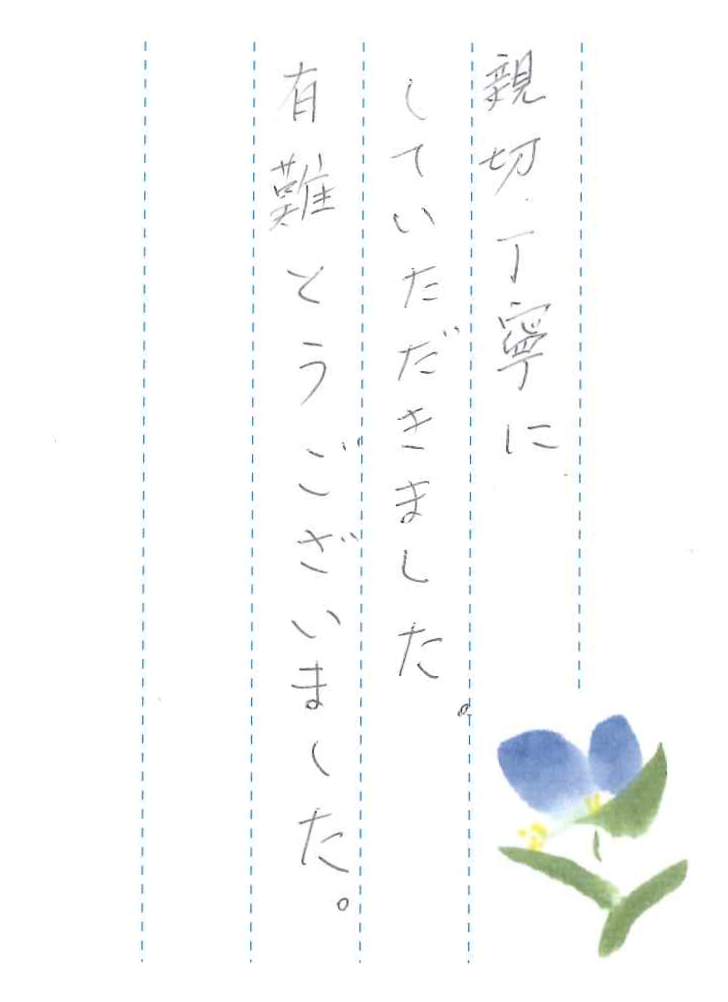 親切・丁寧に
していただきました。
有難とうございました。